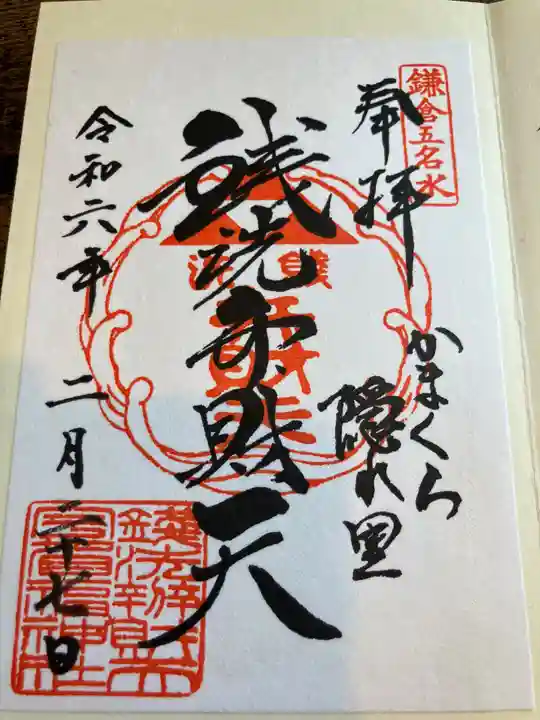 鎌倉五名水
奉拝
かまくら
隠れ里
銭洗弁財天
令和六年
二月二十七日